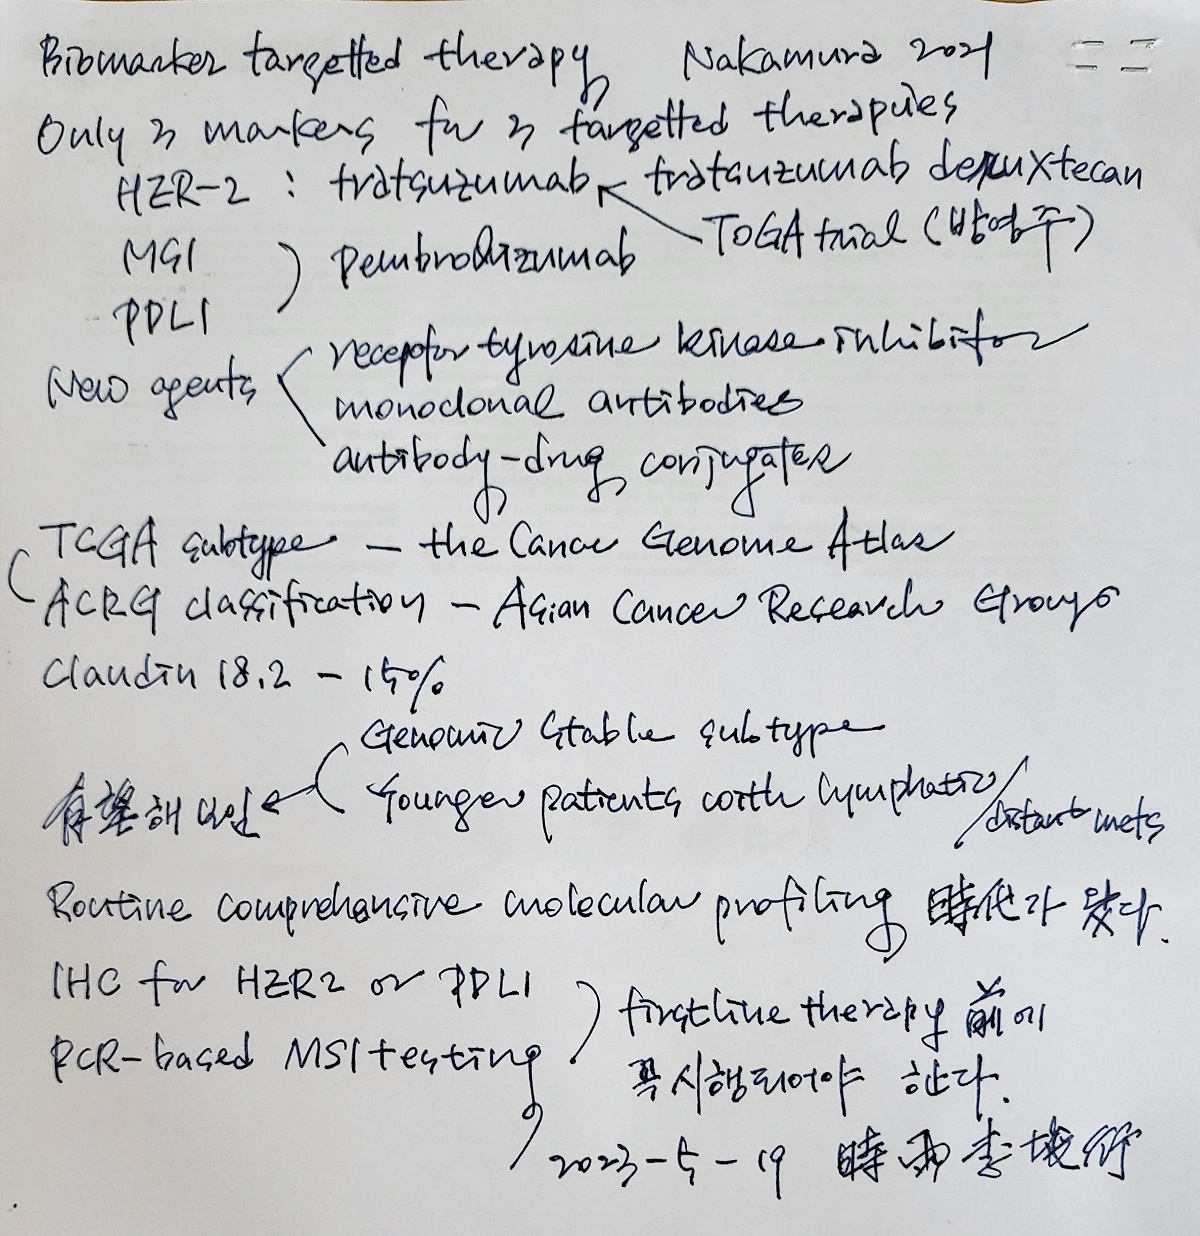 Biomarker targetted therapy Nakamura 2021
Only 3 markers for 3 targetted therapuies
HER-2 : tratsuzumab tratsuzumab deruxtecan
TOGA trial (방영주)
MSI
PDL1
pembrolizumab
New agents
receptor tyrosine kinase inhibitor
monoclonal antibodies
antibody-drug conjugates
TCGA subtype - the Cancer Genome Atlas
ACRG classification - Asian Cancer Research Group
Claudin 18.2 - 15%
Genomic stable subtype
Younger patients with lymphatic/distant mets
有望해 보임
Routine comprehensive molecular profiling 時代가 왔다.
IHC for HER2 or PDL1
PCR-based MSI testing
firstline therapy 前에
꼭 시행되어야 한다.
2023-5-19 時雨 李